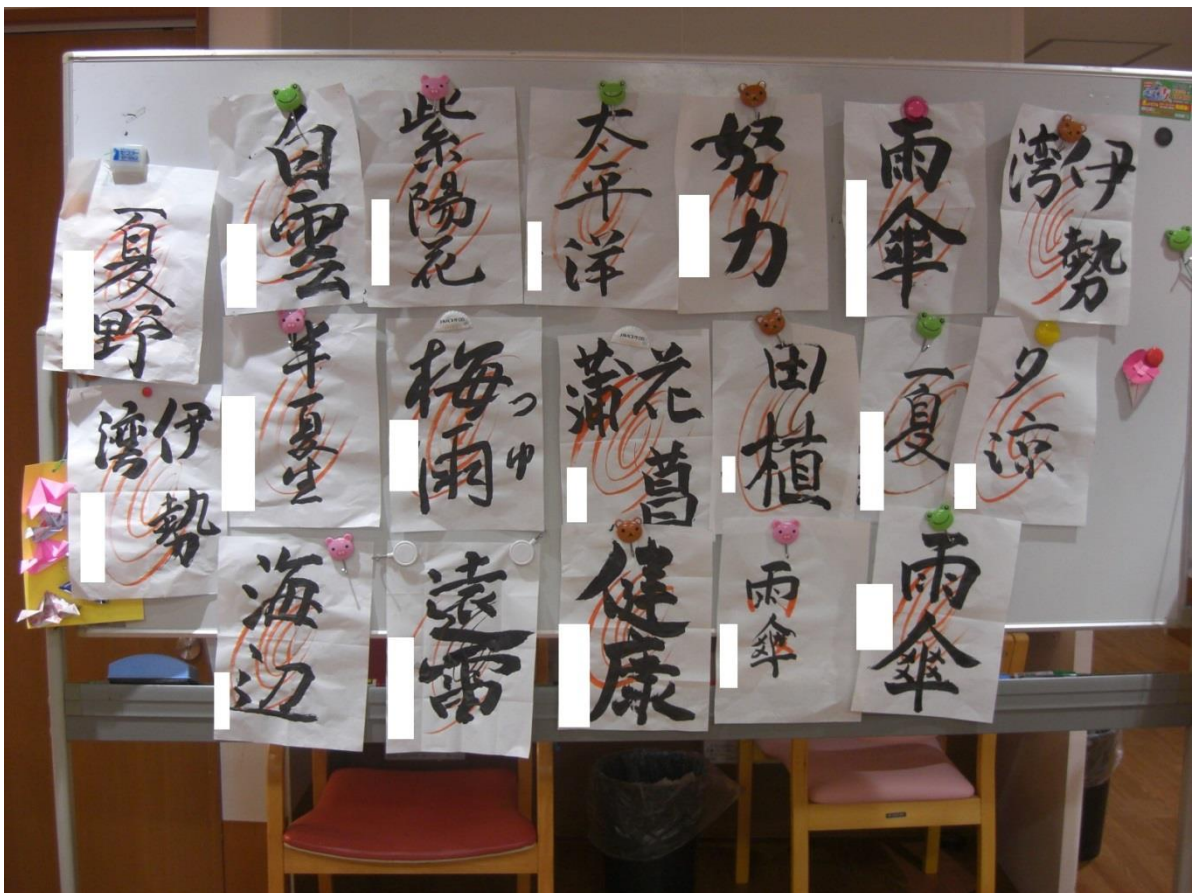 夏野
白雲
紫陽花
太平洋
努力
雨傘
伊勢
湾
伊勢
湾
半夏生
梅雨
つゆ
花菖
蒲
田植
夏
夕涼
海辺
遠雷
健康
雨傘
雨傘